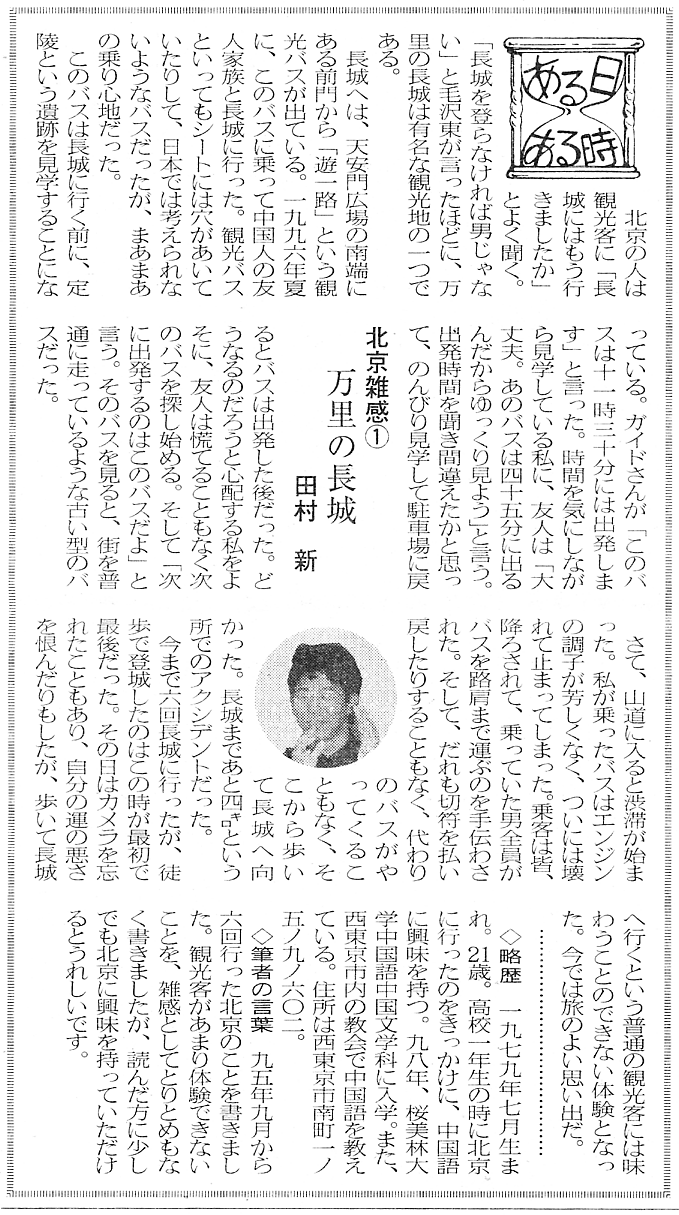 ある日
ある時
北京の人は
観光客に「長
城にはもう行
きましたか」
とよく聞く。
「長城を登らなければ男じゃな
い」と毛沢東が言ったほどに、万
里の長城は有名な観光地の一つで
ある。
長城へは、天安門広場の南端に
ある前門から「遊一路」という観
光バスが出ている。一九九六年夏
に、このバスに乗って中国人の友
人家族と長城に行った。観光バス
といってもシートには穴があいて
いたりして、日本では考えられな
いようなバスだったが、まあまあ
の乗り心地だった。
このバスは長城に行く前に、定
陵という遺跡を見学することにな
っている。ガイドさんが「このバ
スは十一時三十分には出発しま
す」と言った。時間を気にしなが
ら見学している私に、友人は「大
丈夫。あのバスは四十五分に出る
んだからゆっくり見よう」と言う。
出発時間を聞き間違えたかと思っ
て、のんびり見学して駐車場に戻
北京雑感①
万里の長城
田村 新
るとバスは出発した後だった。ど
うなるのだろうと心配する私をよ
そに、友人は慌てることもなく次
のバスを探し始める。そして「次
に出発するのはこのバスだよ」と
言う。そのバスを見ると、街を普
通に走っているような古い型のバ
スだった。
さて、山道に入ると渋滞が始ま
った。私が乗ったバスはエンジン
の調子が芳しくなく、ついには壊
れて止まってしまった。乗客は皆、
降ろされて、乗っていた男全員が
バスを路肩まで運ぶのを手伝わさ
れた。そして、だれも切符を払い
戻したりすることもなく、代わり
のバスがや
ってくるこ
ともなく、そ
こから歩い
て長城へ向
かった。長城まであと四㌔という
所でのアクシデントだった。
今まで六回長城に行ったが、徒
歩で登城したのはこの時が最初で
最後だった。その日はカメラを忘
れたこともあり、自分の運の悪さ
を恨んだりもしたが、歩いて長城
へ行くという普通の観光客には味
わうことのできない体験となっ
た。今では旅のよい思い出だ。
◇略歴 一九七九年七月生ま
れ。21歳。高校一年生の時に北京
に行ったのをきっかけに、中国語
に興味を持つ。九八年、桜美林大
学中国語中国文学科に入学。また、
西東京市内の教会で中国語を教え
ている。住所は西東京市南町一ノ
五ノ九ノ六〇二。
◇筆者の言葉 九五年九月から
六回行った北京のことを書きまし
た。観光客があまり体験できない
ことを、雑感としてとりとめもな
く書きましたが、読んだ方に少し
でも北京に興味を持っていただけ
るとうれしいです。